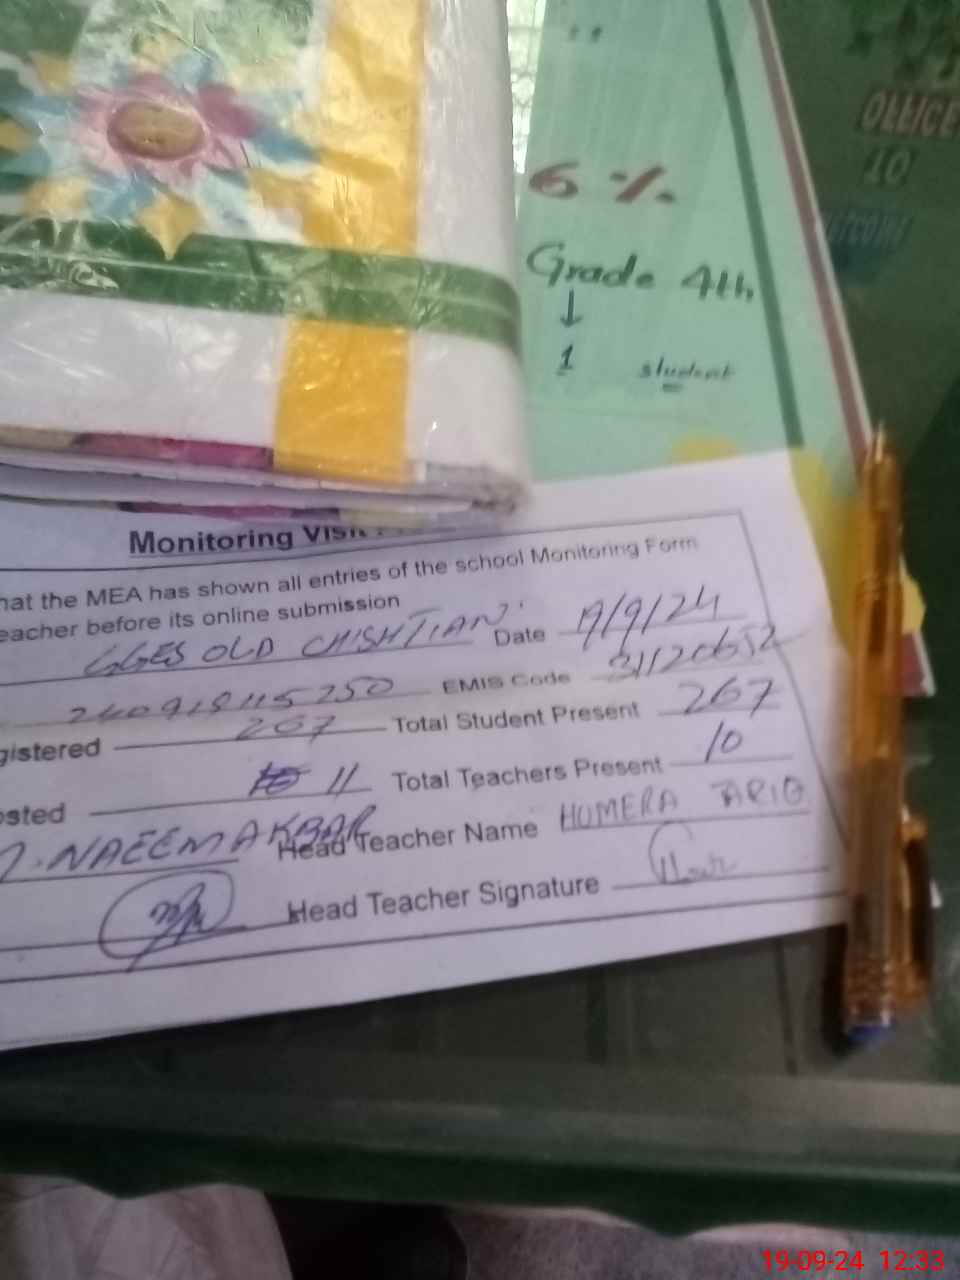 OFFICE
10
6 %
Grade 4th
↓
1 student
Monitoring Visit
hat the MEA has shown all entries of the school Monitoring Form
eacher before its online submission
GGES OLD CHISHTIAN Date 19/9/24
240918115250 EMIS Code 31120652
gistered 267 Total Student Present 267
osted 11 Total Teachers Present 10
M. NAEEM AKBAR Head Teacher Name HUMERA TARIQ
Head Teacher Signature
19-09-24 12:33